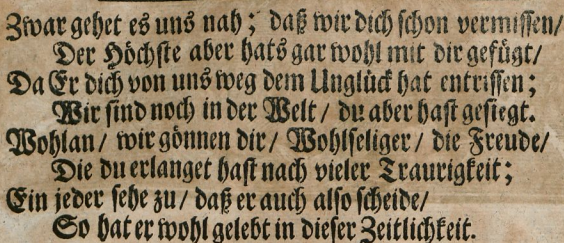 Zwar gehet es uns nah; daß wir dich schon vermissen/
Der Höchste aber hats gar wohl mit dir gefügt/
Da Er dich von uns weg dem Unglück hat entrissen;
Wir sind noch in der Welt / du aber hast gesiegt.
Wohlan / wir gönnen dir / Wohlseliger / die Freude/
Die du erlanget hast nach vieler Traurigkeit;
Ein jeder sehe zu / daß er auch also scheide/
So hat er wohl gelebt in dieser Zeitlichkeit.